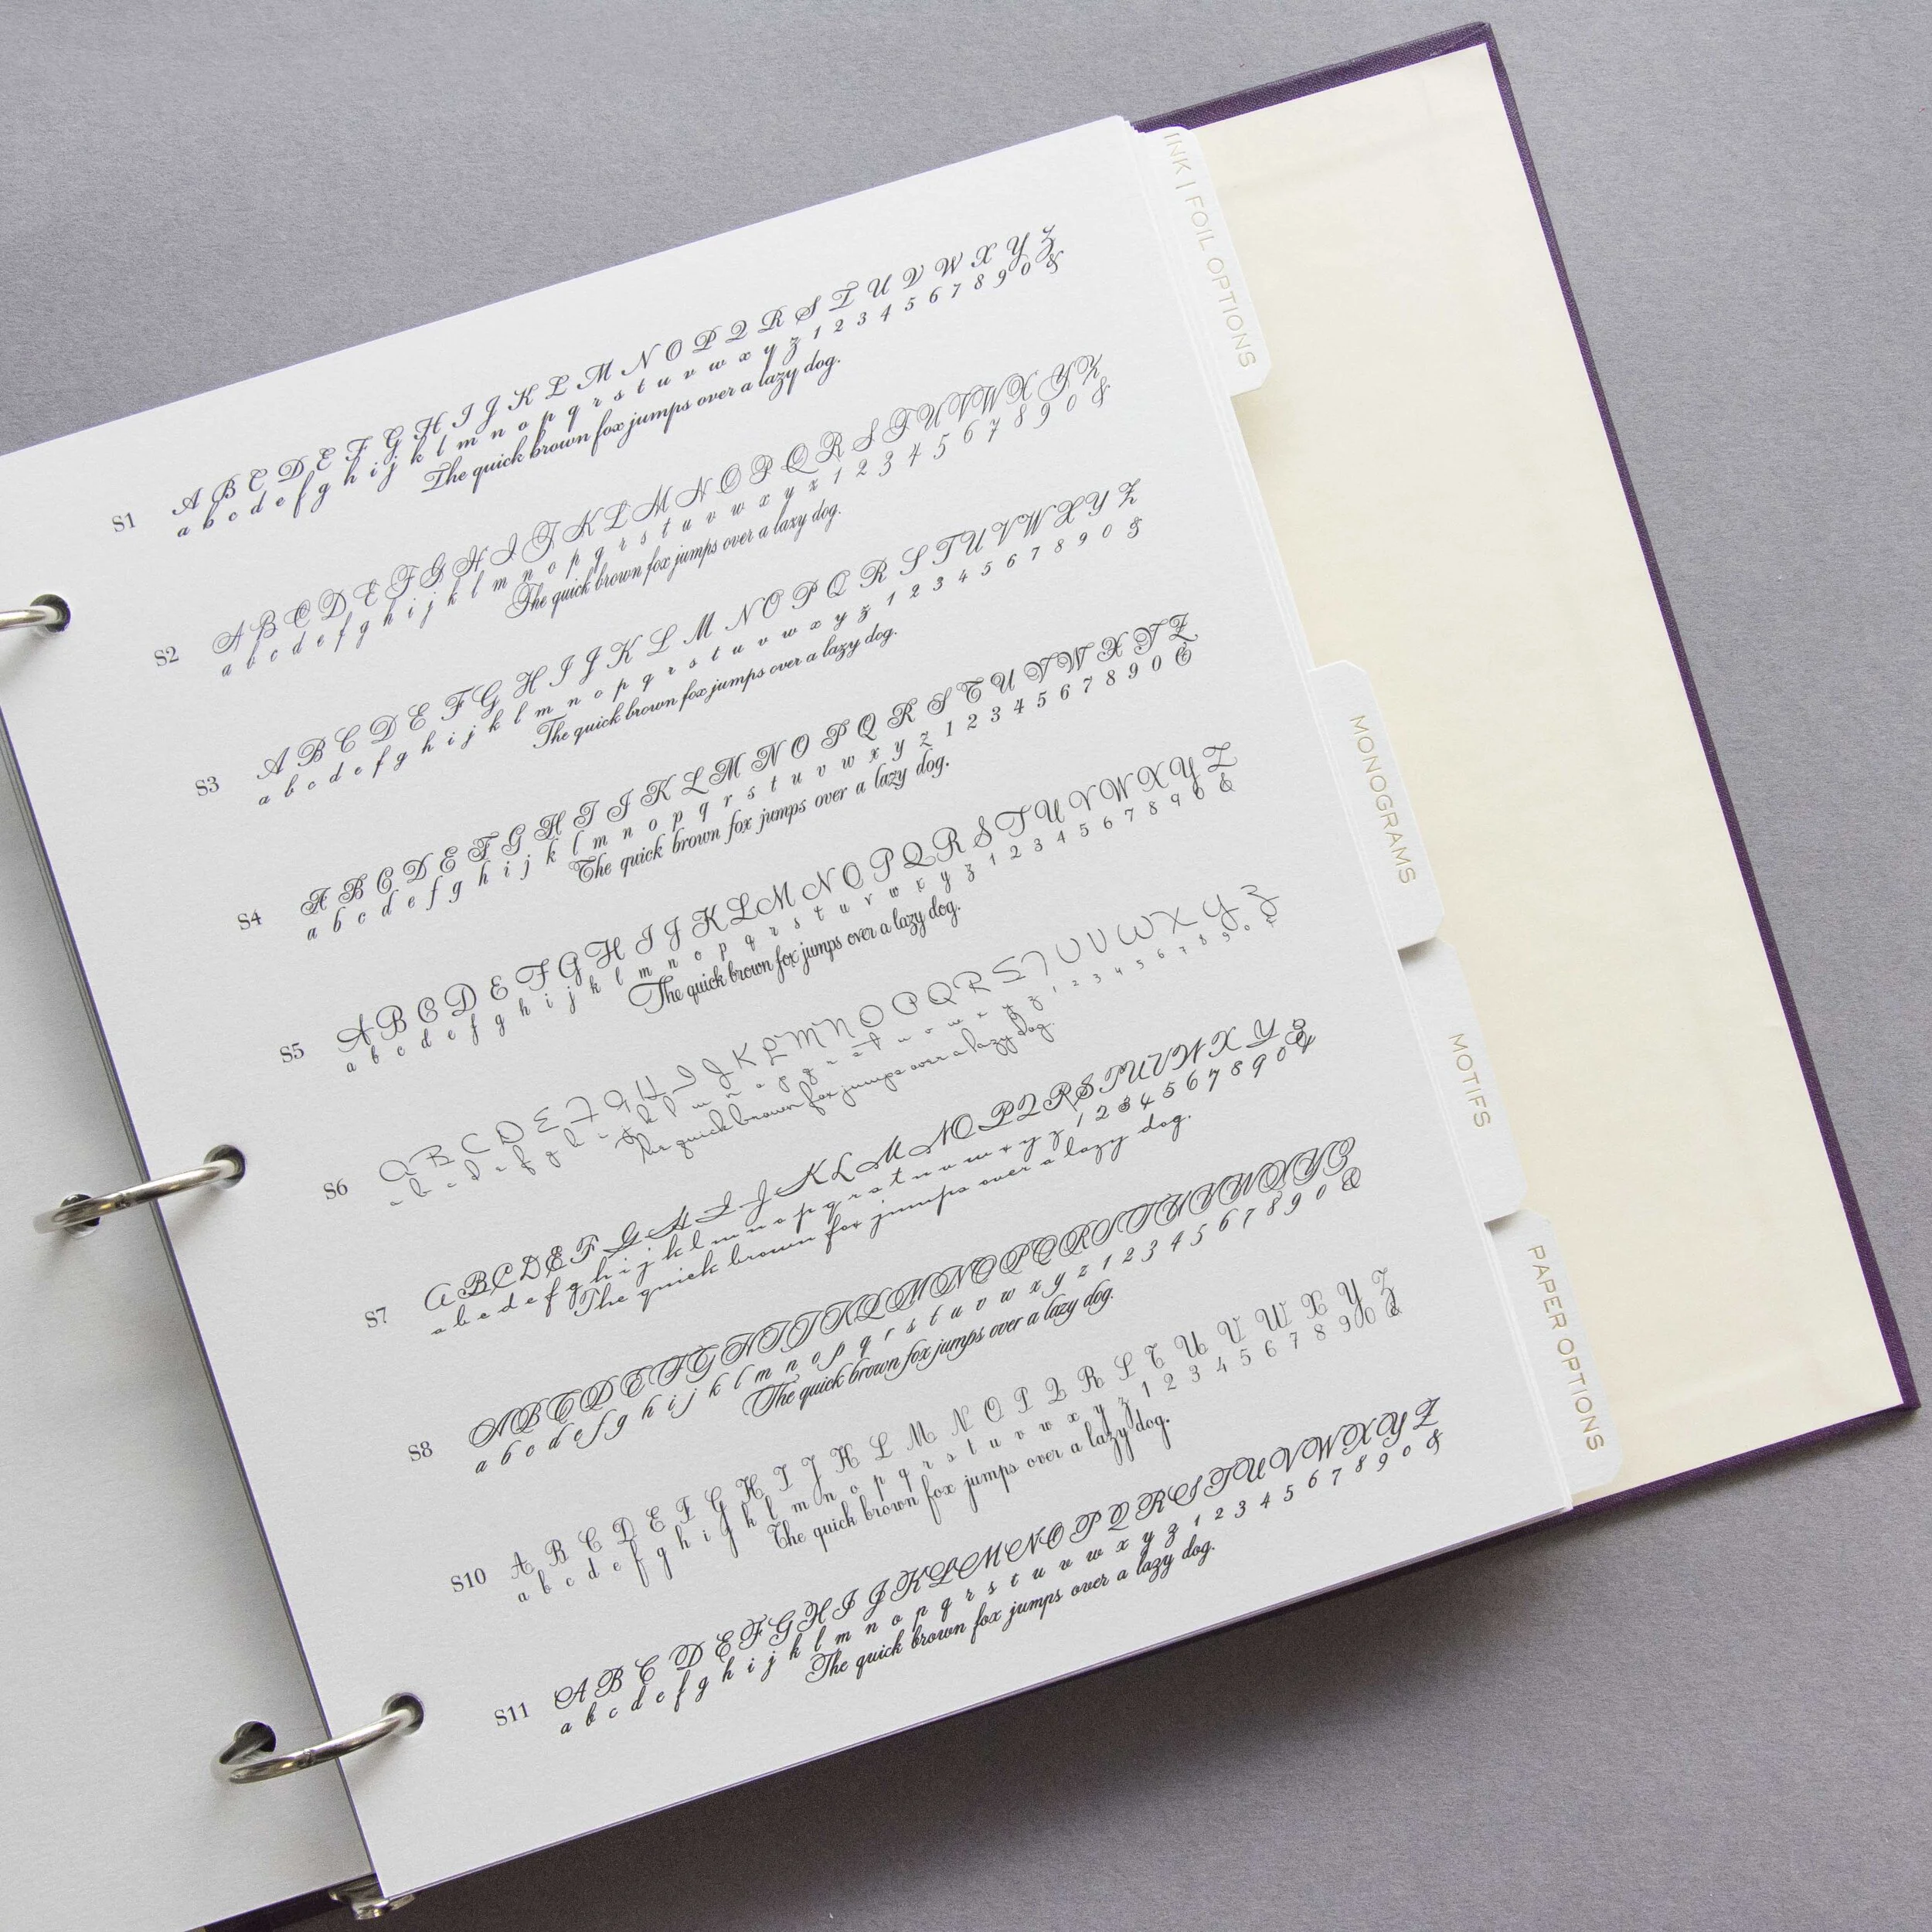 S1 A B C D E F G H I J K L M N O P Q R S T U V W X Y Z
a b c d e f g h i j k l m n o p q r s t u v w x y z 1 2 3 4 5 6 7 8 9 0 &
The quick brown fox jumps over a lazy dog.
S2 A B C D E F G H I J K L M N O P Q R S T U V W X Y Z
a b c d e f g h i j k l m n o p q r s t u v w x y z 1 2 3 4 5 6 7 8 9 0 &
The quick brown fox jumps over a lazy dog.
S3 A B C D E F G H I J K L M N O P Q R S T U V W X Y Z
a b c d e f g h i j k l m n o p q r s t u v w x y z 1 2 3 4 5 6 7 8 9 0 &
The quick brown fox jumps over a lazy dog.
S4 A B C D E F G H I J K L M N O P Q R S T U V W X Y Z
a b c d e f g h i j k l m n o p q r s t u v w x y z 1 2 3 4 5 6 7 8 9 0 &
The quick brown fox jumps over a lazy dog.
S5 A B C D E F G H I J K L M N O P Q R S T U V W X Y Z
a b c d e f g h i j k l m n o p q r s t u v w x y z 1 2 3 4 5 6 7 8 9 0 &
The quick brown fox jumps over a lazy dog.
S6 A B C D E F G H I J K L M N O P Q R S T U V W X Y Z
a b c d e f g h i j k l m n o p q r s t u v w x y z 1 2 3 4 5 6 7 8 9 0 &
The quick brown fox jumps over a lazy dog.
S7 A B C D E F G H I J K L M N O P Q R S T U V W X Y Z
a b c d e f g h i j k l m n o p q r s t u v w x y z 1 2 3 4 5 6 7 8 9 0 &
The quick brown fox jumps over a lazy dog.
S8 A B C D E F G H I J K L M N O P Q R S T U V W X Y Z
a b c d e f g h i j k l m n o p q r s t u v w x y z 1 2 3 4 5 6 7 8 9 0 &
The quick brown fox jumps over a lazy dog.
S10 A B C D E F G H I J K L M N O P Q R S T U V W X Y Z
a b c d e f g h i j k l m n o p q r s t u v w x y z 1 2 3 4 5 6 7 8 9 0 &
The quick brown fox jumps over a lazy dog.
S11 A B C D E F G H I J K L M N O P Q R S T U V W X Y Z
a b c d e f g h i j k l m n o p q r s t u v w x y z 1 2 3 4 5 6 7 8 9 0 &
The quick brown fox jumps over a lazy dog.
INK | FOIL OPTIONS
MONOGRAMS
MOTIFS
PAPER OPTIONS